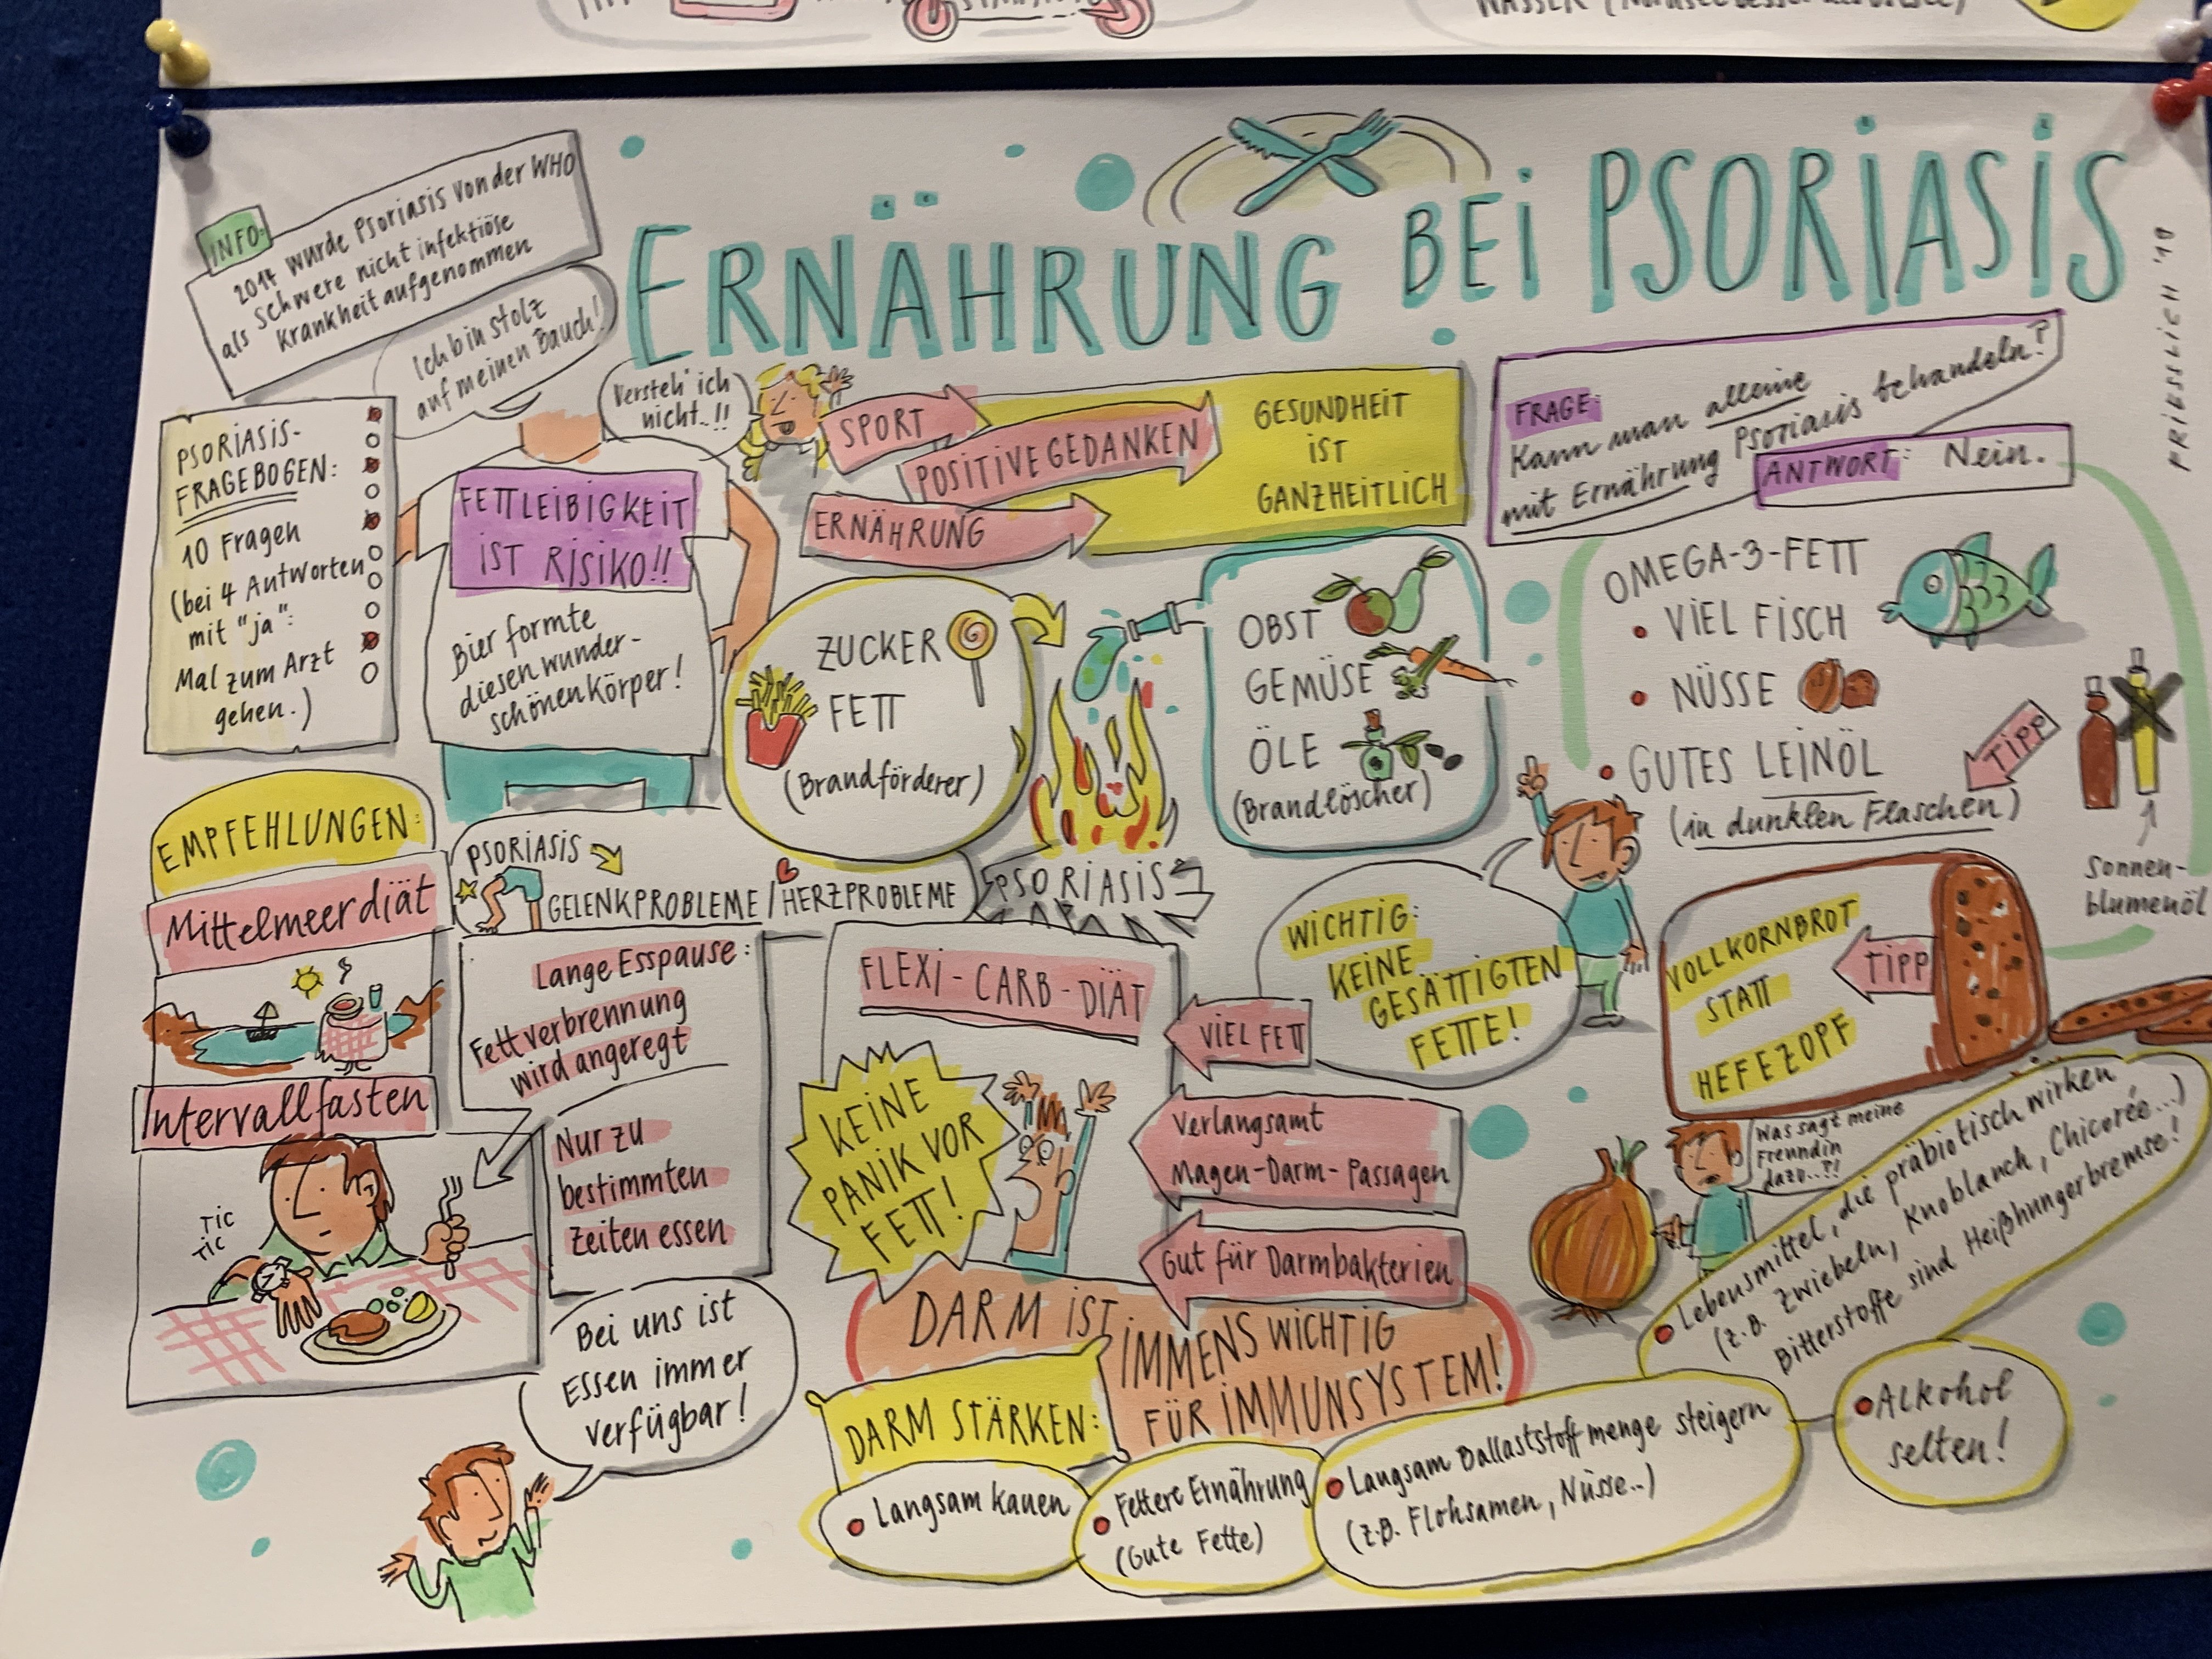 INFO:
2014 wurde Psoriasis von der WHO
als schwere nicht infektiöse
Krankheit aufgenommen
ERNÄHRUNG BEI PSORIASIS
Ich bin stolz
auf meinen Bauch!
Versteh' ich
nicht..!!
PSORIASIS-
FRAGEBOGEN:
10 Fragen
(bei 4 Antworten
mit "ja":
Mal zum Arzt
gehen.)
FETTLEIBIGKEIT
IST RISIKO!!
Bier formte
diesen wunder-
schönen Körper!
SPORT
POSITIVE GEDANKEN
ERNÄHRUNG
GESUNDHEIT
IST
GANZHEITLICH
FRAGE:
Kann man alleine
mit Ernährung Psoriasis behandeln?
ANTWORT: Nein.
ZUCKER
FETT
(Brandförderer)
OBST
GEMÜSE
ÖLE
(Brandlöscher)
PSORIASIS
OMEGA-3-FETT
• VIEL FISCH
• NÜSSE
• GUTES LEINÖL
(in dunklen Flaschen)
TIPP
Sonnen-
blumenöl
EMPFEHLUNGEN:
Mittelmeerdiät
Intervallfasten
TIC
TIC
PSORIASIS
GELENKPROBLEME / HERZPROBLEME
Lange Esspause:
Fettverbrennung
wird angeregt
Nur zu
bestimmten
Zeiten essen
Bei uns ist
Essen immer
verfügbar!
FLEXI-CARB-DIÄT
KEINE
PANIK VOR
FETT!
VIEL FETT
Verlangsamt
Magen-Darm-Passagen
Gut für Darmbakterien
WICHTIG:
KEINE
GESÄTTIGTEN
FETTE!
VOLLKORNBROT
STATT
HEFEZOPF
TIPP
Was sagt meine
Freundin
dazu..?!
• Lebensmittel, die präbiotisch wirken
(z.B. Zwiebeln, Knoblauch, Chicorée...)
Bitterstoffe sind Heißhungerbremse!
DARM IST IMMENS WICHTIG
FÜR IMMUNSYSTEM!
DARM STÄRKEN:
• Langsam kauen
• Fettere Ernährung
(Gute Fette)
• Langsam Ballaststoffmenge steigern
(z.B. Flohsamen, Nüsse..)
• Alkohol
selten!